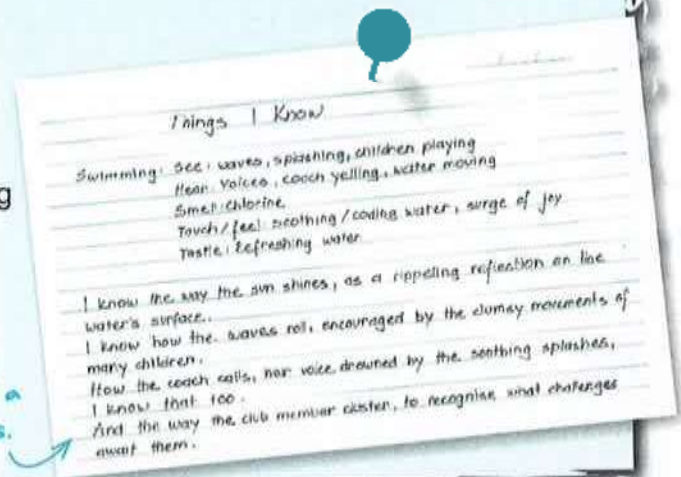 Things I Know
Swimming: See: waves, splashing, children playing
Hear: Voices, coach yelling, water moving
Smell: Chlorine
Touch/feel: soothing/cooling water, surge of joy
Taste: Refreshing water
I know the way the sun shines, as a rippeling reflection on the
water's surface.
I know how the waves roll, encouraged by the clumsy movements of
many children.
How the coach calls, her voice drowned by the soothing splashes,
I know that too.
And the way the club member cluster, to recognise what challenges
await them.
g
a
s.